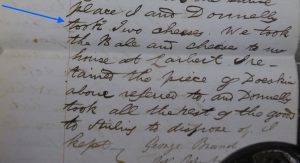 place I and Donnelly
took Two cheeses. We took
the Bale and cheeses to my
house at Larbert I re-
tained the piece of Doeskin
above referred to, and Donnelly
took all the rest of the goods
to Stirling to dispose of. I
kept George Brand